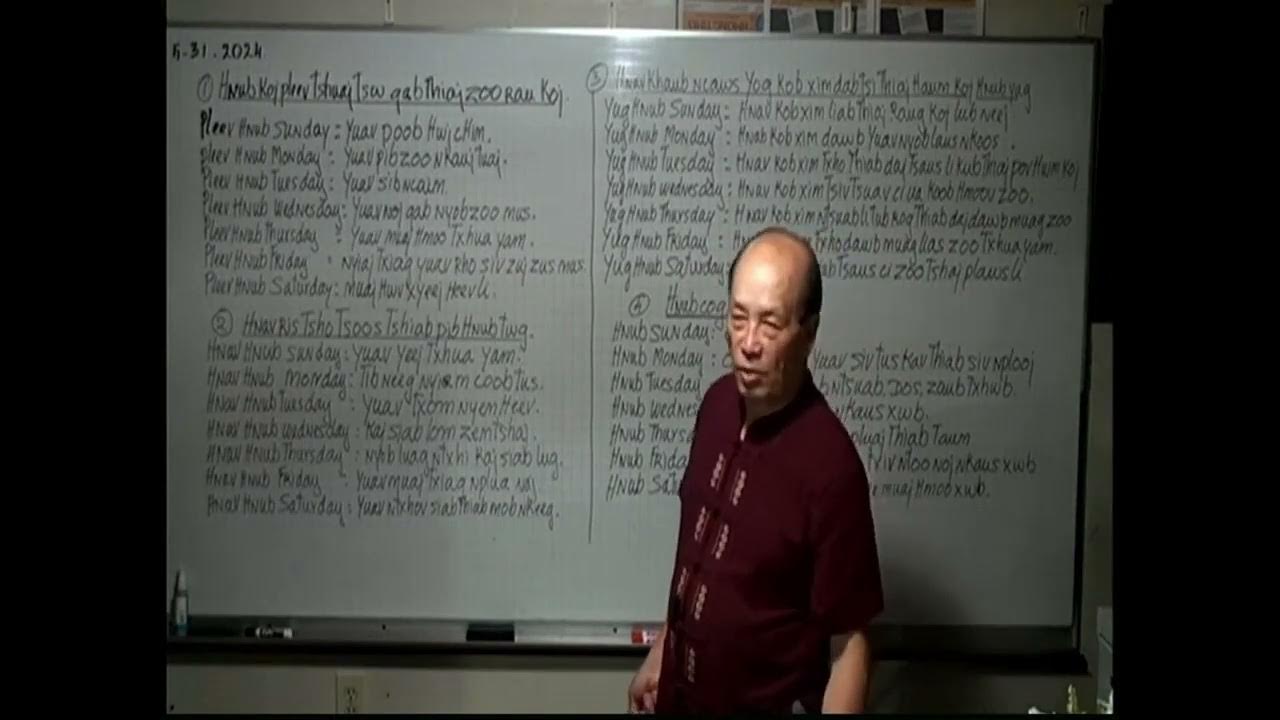 5-31.2024
① Hnub Koj pleev Tshuaj Tsw qab Thiaj ZOO Rau Koj.
Pleev Hnub Sunday = Yuav poob Hwj cHim.
pleev Hnub Monday : Yuav pib zoo nkauj Tuaj.
Pleev Hnub Tuesday : Yuav sib ncaim
Pleev Hnub Wednesday: Yuav noj qab nyob zoo mus.
Pleev Hnub Thursday : Yuav muaj Hmoo Txhua yam.
Pleev Hnub Friday : nyiaj Txiag yuav Rho siv zuj zus mus
Pleev Hnub Saturday: muaj Hwv xyeej Heev li.
② Hnav Ris Tsho Tsoos Tshiab pib Hnub Twg.
Hnav Hnub Sunday: Yuav Yeej Txhua Yam.
Hnav Hnub Monday: Tib neeg nyiam coob Tus.
Hnav Hnub Tuesday : Yuav Txom Nyem Heev.
Hnav Hnub Wednesday : Kaj siab lom zem Tshaj.
Hnav Hnub Thursday : Nyob luag ntxhi Kaj siab lug.
Hnav Hnub Friday : Yuav muaj Txiag nplua nuj
Hnav Hnub Saturday: Yuav ntxhov siab Thiab mob nkeeg.
③ Hnav Khaub Ncaws Yog Kob xim dab Tsi Thiaj Haum Koj Hnub Yug
Yug Hnub Sunday: Hnav Kob xim liab Thiaj Raug Koj lub neej
Yug Hnub Monday : Hnab Kob xim dawb Yuav nyob laus nkoos.
Yug Hnub Tuesday : Hnav Kob xim Txho Thiab daj Tsaus li Kub Thiaj pov Hwm Koj
Yug Hnub Wednesday : Hnav Kob xim Tsiv Tsuav ci ua Koob Hmoov zoo.
Yug Hnub Thursday : Hnav Kob xim Ntsuab li Tub Roq Thiab daj dawb muag zoo
Yug Hnub Friday : Txho dawb muag lias zoo Txhua yam.
Yug Hnub Saturday: Tsaus ci zoo Tshaj plaws li
④ Hnub cog
Hnub Sunday:
Hnub Monday : Yuav siv Tus Kav Thiab siv nplooj
Hnub Tuesday ntsuab, Dos, zaub Txhwb.
Hnub Wednes nkaus xwb.
Hnub Thursd pluaj Thiab Taum
Hnub Frida nkaus xwb
Hnub Sat muaj Hmob xwb.